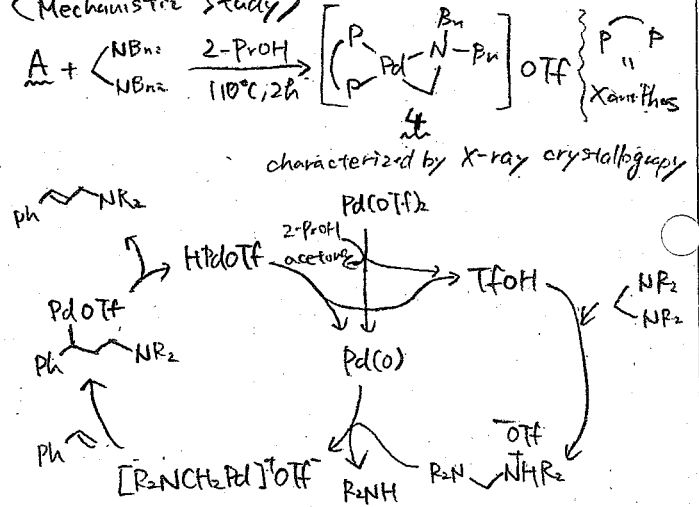 (Mechanistic Study)
A + NBn2 NBn2 2-PrOH 110°C, 2h [ P P Pd N Bn Bn ] OTf P P
"
Xantphos
4
characterized by X-ray crystallograpy
Ph NR2
Pd(OTf)2
2-PrOH
acetone
HPdOTf
TfOH
NR2
NR2
PdOTf
Ph NR2
Pd(0)
Ph
[R2NCH2Pd]+OTf-
R2NH
R2N NHR2
+
-OTf